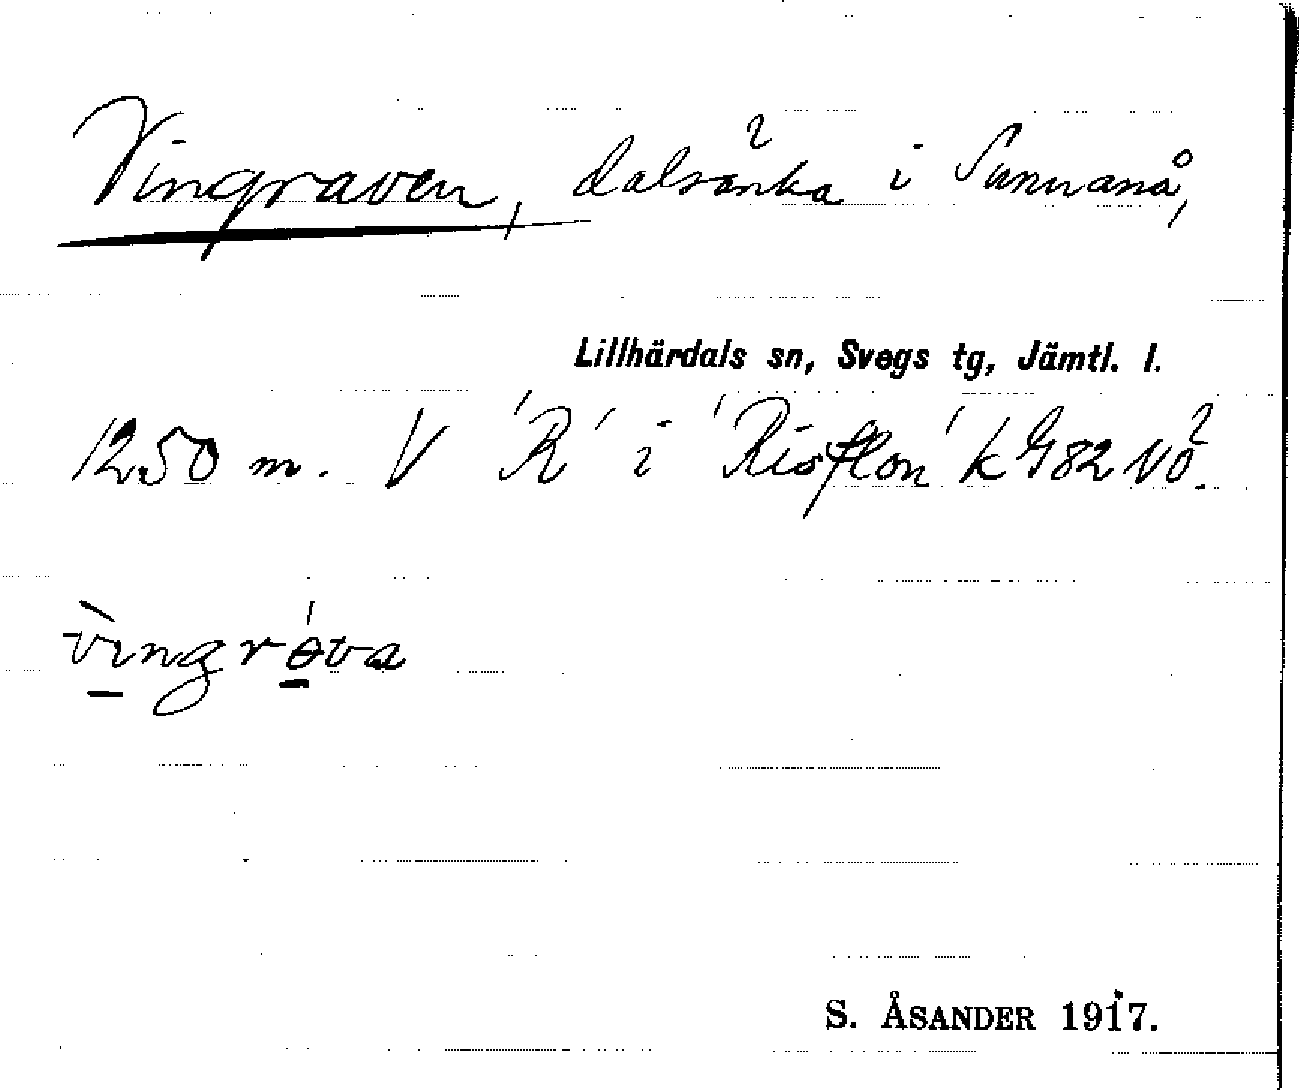 Vingraven, dalsänka i Sunnanå,
Lillhärdals sn, Svegs tg, Jämtl. l.
1250 m. V 'R' i 'Risflon' k G82 VÖ.
vingrɵva
S. ÅSANDER 1917.